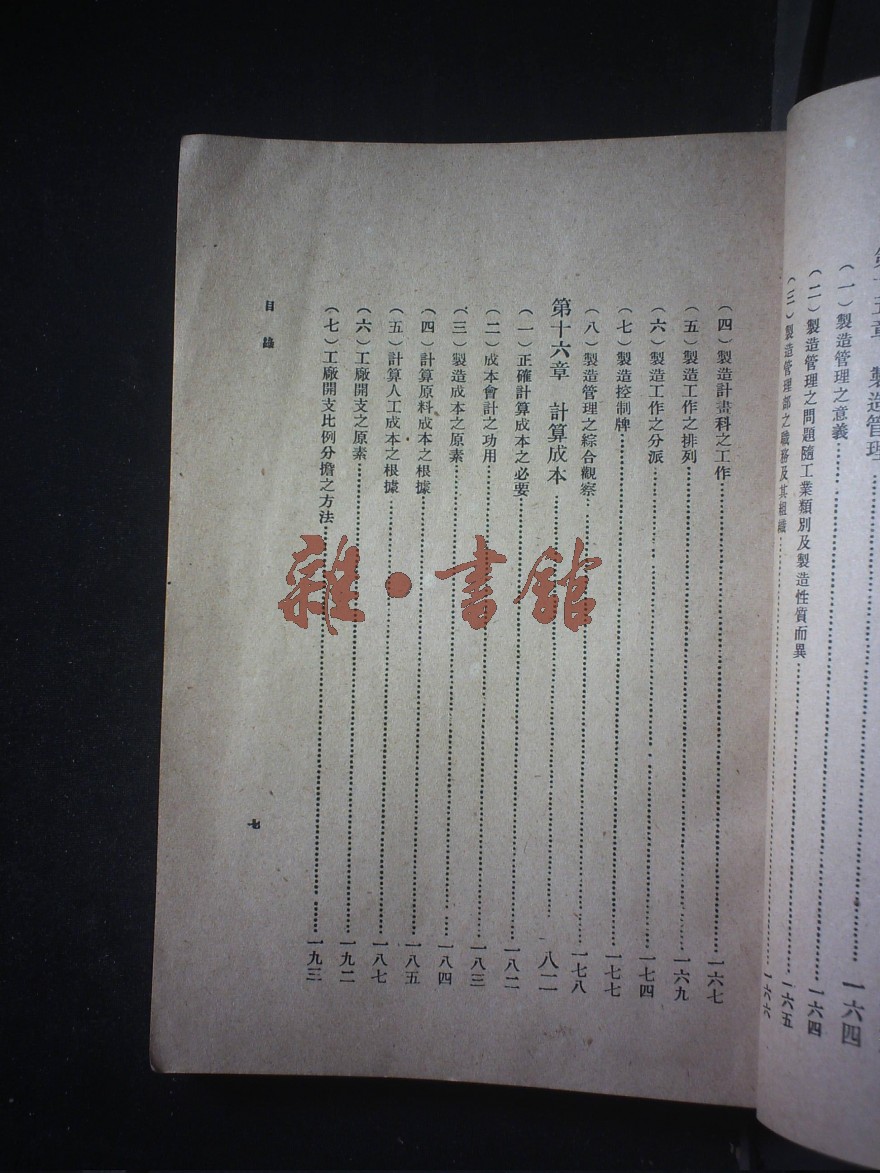 第十五章 製造管理……一六四
（一）製造管理之意義……一六四
（二）製造管理之問題隨工業類別及製造性質而異……一六五
（三）製造管理部之職務及其組織……一六六
（四）製造計畫科之工作……一六七
（五）製造工作之排列……一六九
（六）製造工作之分派……一七四
（七）製造控制牌……一七七
（八）製造管理之綜合觀察……一七八
第十六章 計算成本……八二
（一）正確計算成本之必要……一八二
（二）成本會計之功用……一八三
（三）製造成本之原素……一八四
（四）計算原料成本之根據……一八五
（五）計算人工成本之根據……一八七
（六）工廠開支之原素……一九二
（七）工廠開支比例分擔之方法……一九三
目錄
七
雜·書館